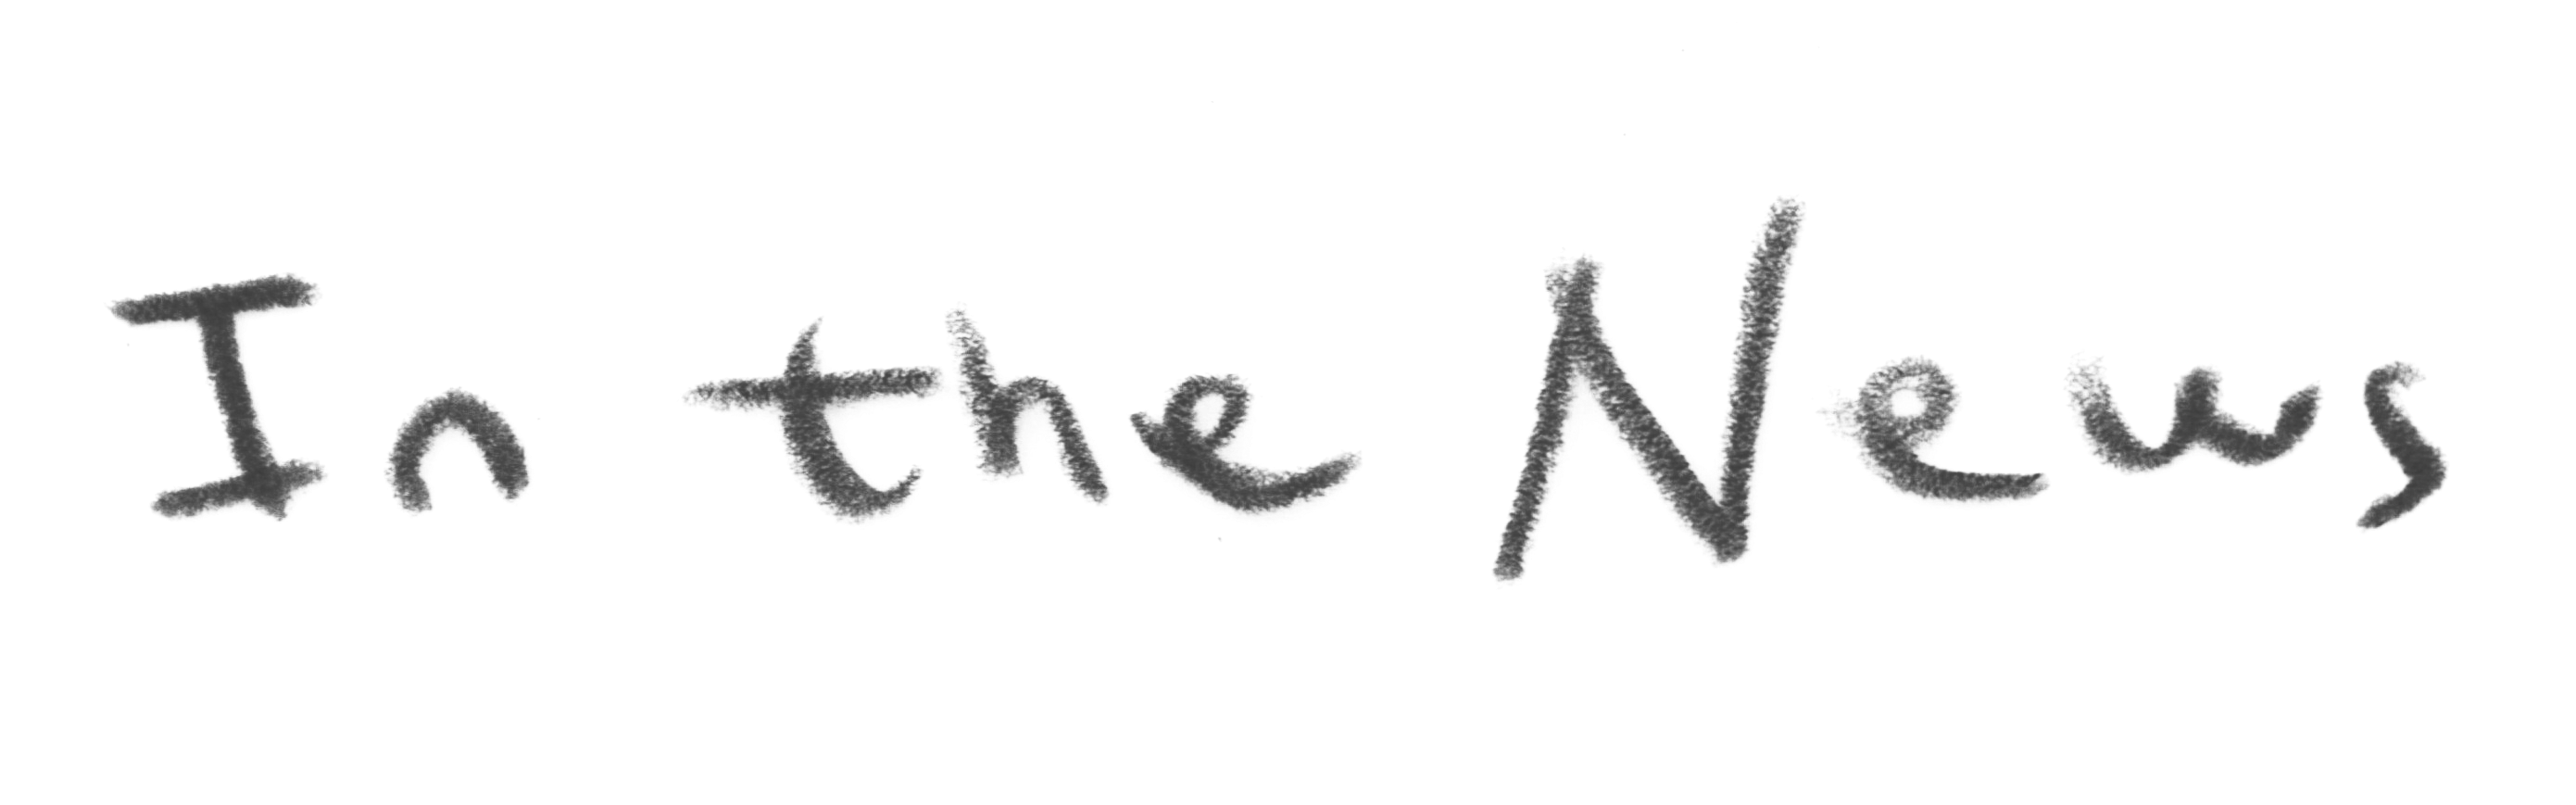 In the News